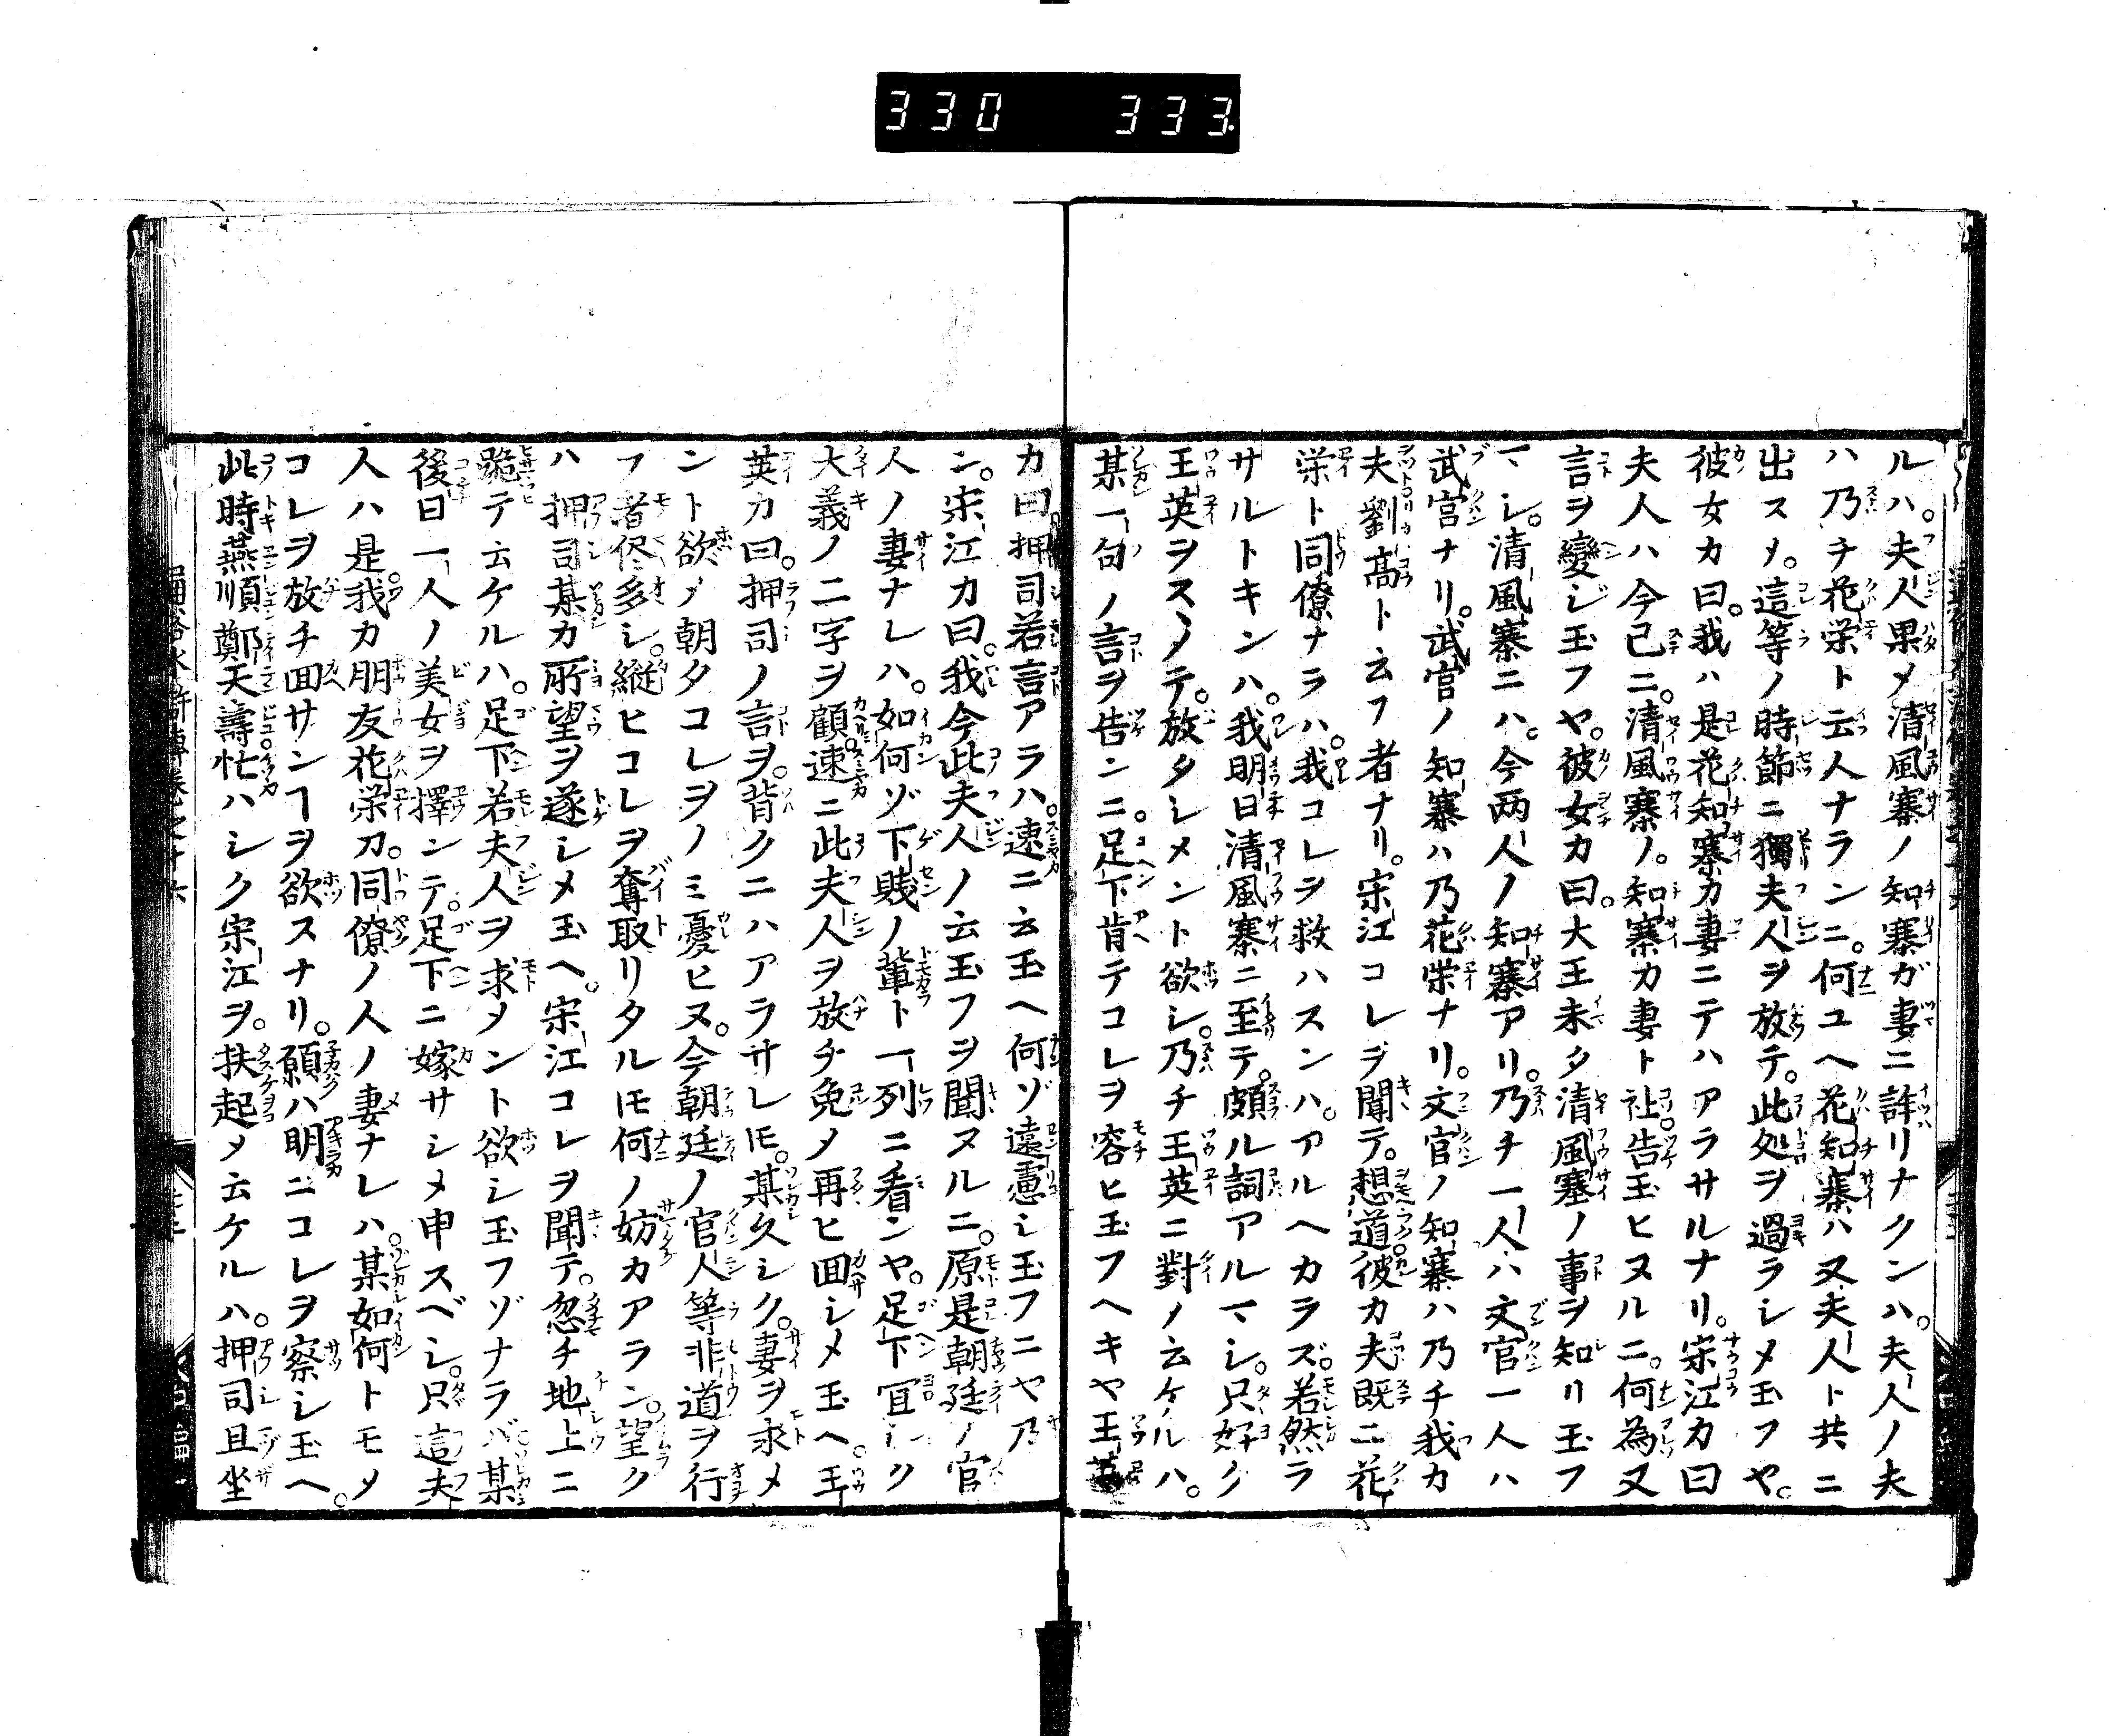 330 333
ルハ。夫人果メ清風寨ノ知寨ガ妻ニ詐リナクンハ。夫人ノ夫
ハ乃チ花栄ト云人ナランニ。何ユヘ花知寨ハ又夫人ト共ニ
出スメ。這等ノ時節ニ獨夫人ヲ放テ。此処ヲ過ラシメ玉フヤ。
彼女カ曰。我ハ是花知寨カ妻ニテハアラサルナリ。宋江カ曰
夫人ハ今已ニ。清風寨ノ。知寨カ妻ト社告玉ヒヌルニ。何為又
言ヲ變シ玉フヤ。彼女カ曰。大王未タ清風塞ノ事ヲ知リ玉フ
マシ。清風寨ニハ。今两人ノ知寨アリ。乃チ一人ハ文官一人ハ
武官ナリ。武官ノ知寨ハ乃花栄ナリ。文官ノ知寨ハ乃チ我カ
夫劉髙ト云フ者ナリ。宋江コレヲ聞テ。想道彼カ夫既ニ花
栄ト同僚ナラハ。我コレヲ救ハスンハ。アルヘカラズ。若然ラ
サルトキンハ。我明日清風寨ニ至テ。頗ル詞アルマシ。只好ク
王英ヲスヽノテ。放タシメント欲シ。乃チ王英ニ對ノ云ケルハ。
某一句ノ言ヲ告ンニ。足下肯テコレヲ容ヒ玉フヘキヤ王英
カ曰。押司若言アラハ。速ニ云玉ヘ何ゾ遠慮シ玉フニヤ乃
ン。宋江カ曰。我今此夫人ノ云玉フヲ聞ヌルニ。原是朝廷ノ官
人ノ妻ナレハ。如何ゾ下賎ノ輩ト一列ニ看ンヤ。足下冝シク
大義ノ二字ヲ顧。速ニ此夫人ヲ放チ免メ再ヒ回シメ玉ヘ。王
英カ曰。押司ノ言ヲ。背クニハアラサレ𪜈。某久シク。妻ヲ求メ
ント欲メ朝タコレヲノミ憂ヒヌ。今朝廷ノ官人等非道ヲ行
フ者侭多シ。縦ヒコレヲ奪取リタル𪜈何ノ妨カアラン。望ク
ハ押司某カ所望ヲ遂シメ玉ヘ。宋江コレヲ聞テ。忽チ地上ニ
跪テ云ケルハ。足下若夫人ヲ求メント欲シ玉フゾナラバ某
後日一人ノ美女ヲ擇ンテ。足下ニ嫁サシメ申スベシ。只這夫
人ハ是。我カ朋友花栄カ。同僚ノ人ノ妻ナレハ。某如何トモメ
コレヲ放チ回サンヿヲ欲スナリ。願ハ明ニコレヲ察シ玉ヘ。
此時燕順鄭天壽。忙ハシク宋江ヲ。扶起メ云ケルハ。押司且坐